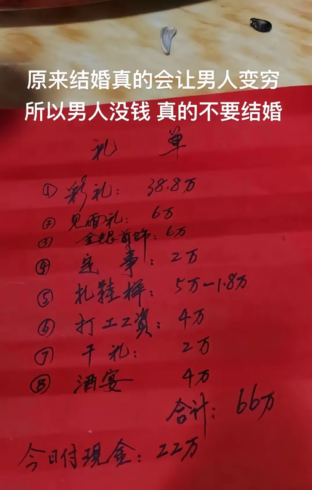 原来结婚真的会让男人变穷
所以男人没钱 真的不要结婚
礼 单
① 彩礼：38.8万
② 见面礼：6万
③ 金银首饰：6万
④ 定事：2万
⑤ 扎鞋样：5万-1.8万
⑥ 打工工资：4万
⑦ 干礼：2万
⑧ 酒宴 4万
合计：66万
今日付现金：22万